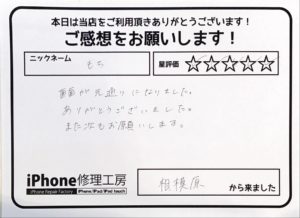 本日は当店をご利用頂きありがとうございます!
ご感想をお願いします!
ニックネーム
もち
星評価 ☆☆☆☆☆
が元通りになりました。
ありがとうございました。
また次もお願いします。
iPhone修理工房
iPhone Repair Factory iPhone/iPad/iPod touch
相模原 から来ました